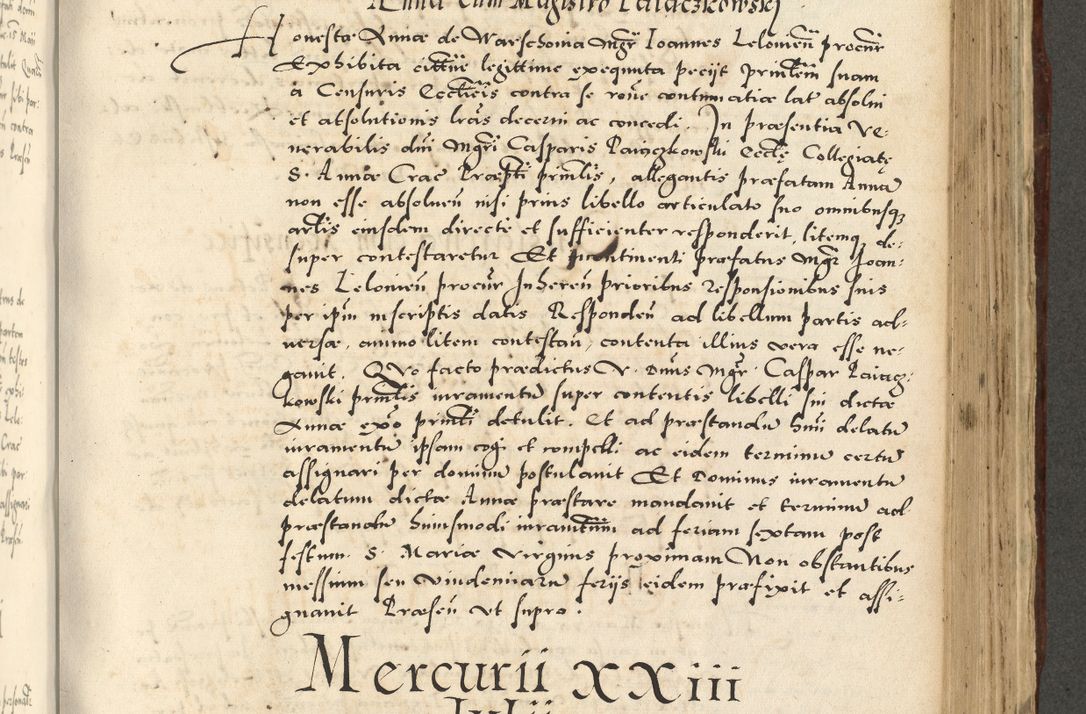 Anna cum Magistro Paiaczkowskj
Honestæ Annæ de Warschouia Mgr Ioannes Lelouień procur
Exhibita citne legittime exequuta pecijt prinlem suam
a Censuris Ecclicis contra se roue contumatiæ lat absolui
et absolutionis lras decerni ac concedi. In præsentia Ve-
nerabilis dni Mgri Casparis Paiączkowski Eccle Collegiatę
S. Annæ Crac Præpti prinlis, allegantis præfatam Annā
non esse absoluen nisi prius libello articulato suo omnibusq
artlis eiusdem directe et sufficienter responderit, litemq de-
super contestaretur Et incontinenti præfatus Mgr Joan-
nes Lelouień procur Inheren prioribus Responsionibus suis
per ipm inscriptis datis Responden ad libellum partis ad-
uersæ, animo litem contestan, contenta illius vera esse ne-
gauit. Quo facto prædictus V. Dnus Mgr Caspar Paiącz-
kowski prinlis iuramentū super contentis libelli sui dictæ
Annæ exo prinli detulit. Et ad præstandū hmi delatū
iuramentū ipsam cogi et compelli ac eidem terminū certū
assignari per dominū postulauit Et Dominus iuramentū
delatum dictæ Annæ præstare mandauit et terminū ad
præstandū huiusmodi iuramtum ad feriam sextam post
festum S. Mariæ Virginis proximam Non obstantibus
messium seu vindemiarū ferijs eidem præfixit et assi-
gnauit Præsen vt supra.
Mercurii XXiii
Iulii